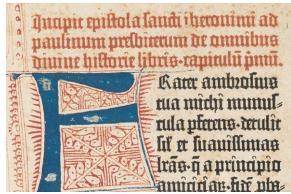 Incipit epistola sancti iheronimi ad
paulinum presbiterum de omnibus
divine historie libris· capitulū pͥmū.
Frater ambrosius
tua michi munus-
cula pferens· detulit
sil' et suavissimas
lr̄as· q̄ a principio
amicicie